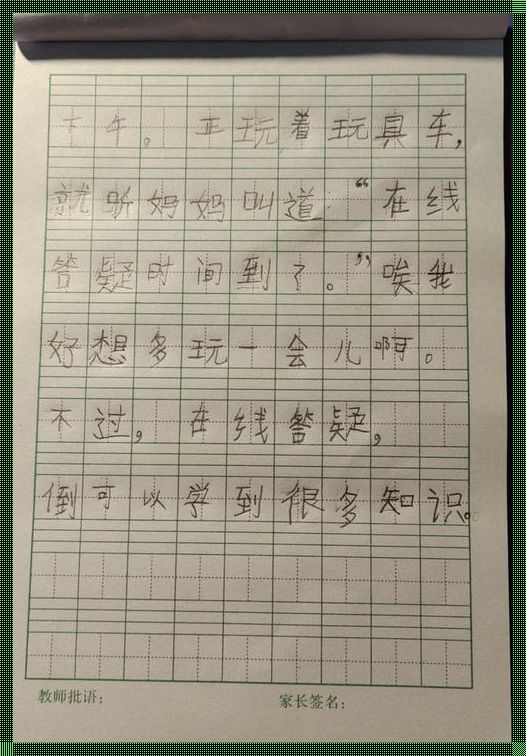 下午。正玩着玩具车,
就听妈妈叫道“在线
答疑时间到了。”唉我
好想多玩一会儿啊。
不过,在线答疑,
倒可以学到很多知识。
教师批语:
家长签名: